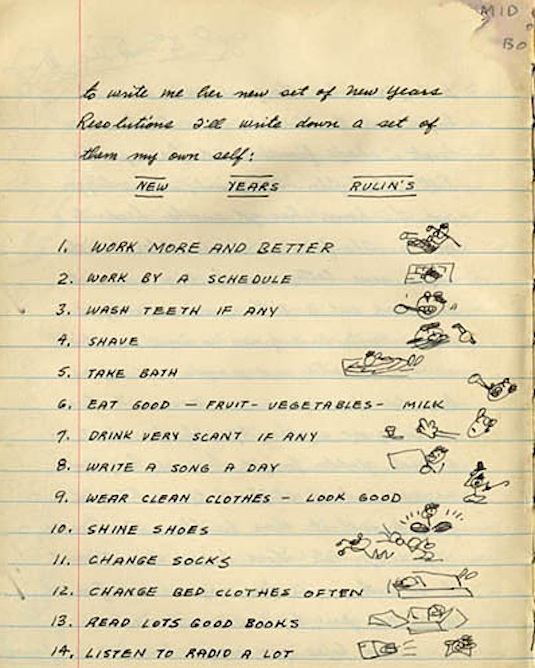 MID
BO
to write me her new set of New Years
Resolutions I'll write down a set of
them my own self:
NEW YEARS RULIN'S
1. WORK MORE AND BETTER
2. WORK BY A SCHEDULE
3. WASH TEETH IF ANY
4. SHAVE
5. TAKE BATH
6. EAT GOOD — FRUIT - VEGETABLES - MILK
7. DRINK VERY SCANT IF ANY
8. WRITE A SONG A DAY
9. WEAR CLEAN CLOTHES - LOOK GOOD
10. SHINE SHOES
11. CHANGE SOCKS
12. CHANGE BED CLOTHES OFTEN
13. READ LOTS GOOD BOOKS
14. LISTEN TO RADIO A LOT